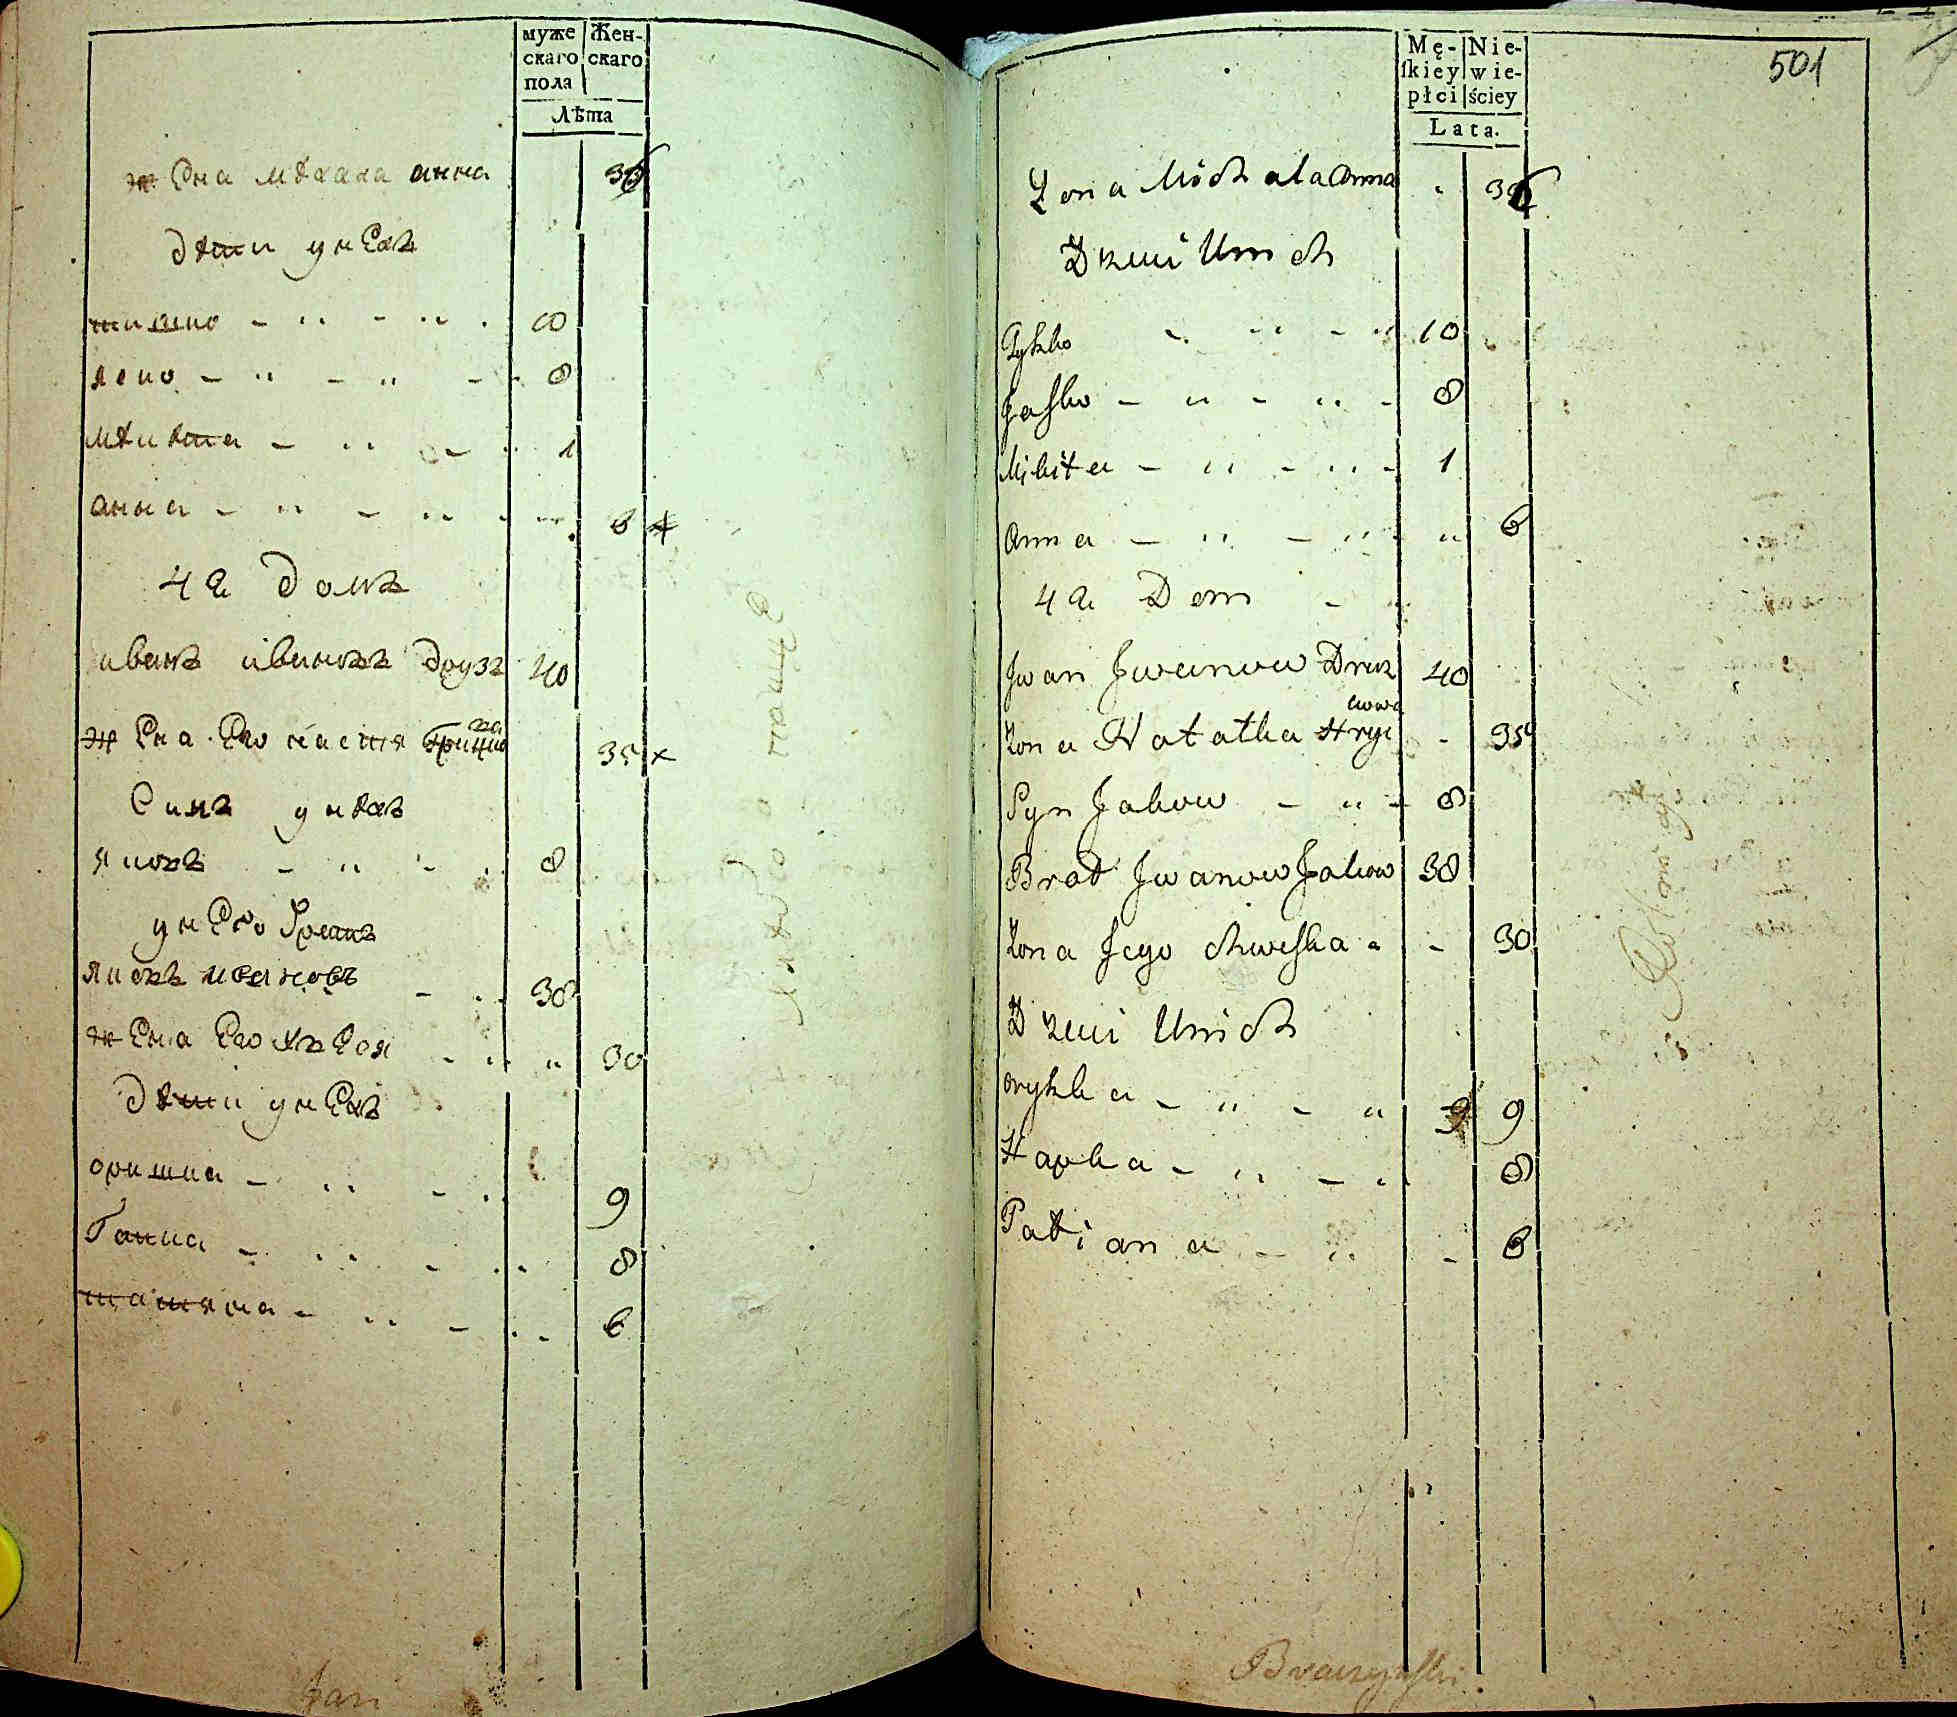 муже
скаго
пола
Жен-
скаго
Лѣта
жена михала анна 36
дѣти унехъ
тишко 10
яско 8
микита 1
анна 6
4й домъ
иванъ ивановъ друзъ 40
жена его настя грицко
35 х
синъ унихъ
яковъ 8
унего братъ
яковъ ивановъ 38
жена его хвеся 30
дѣти унехъ
оришка 9
Гапка 8
татяна 6
Jan
501
Mę-
skiey
płci
Nie-
wie-
ściey
Lata.
Zona Michala Anna 36
Dzieci Unich
Tyszko 10
Jaśko 8
Mikita 1
Anna 6
4й Dom
Jwan Jwanow Druz 40
Zona Natalka Hryc 35
cowa
Syn Jakow 8
Brat Jwanow Jakow 38
Zona Jego Chweśka 30
Dzieci Unich
Oryszka 9 9
Hapka 8
Tatiana 6